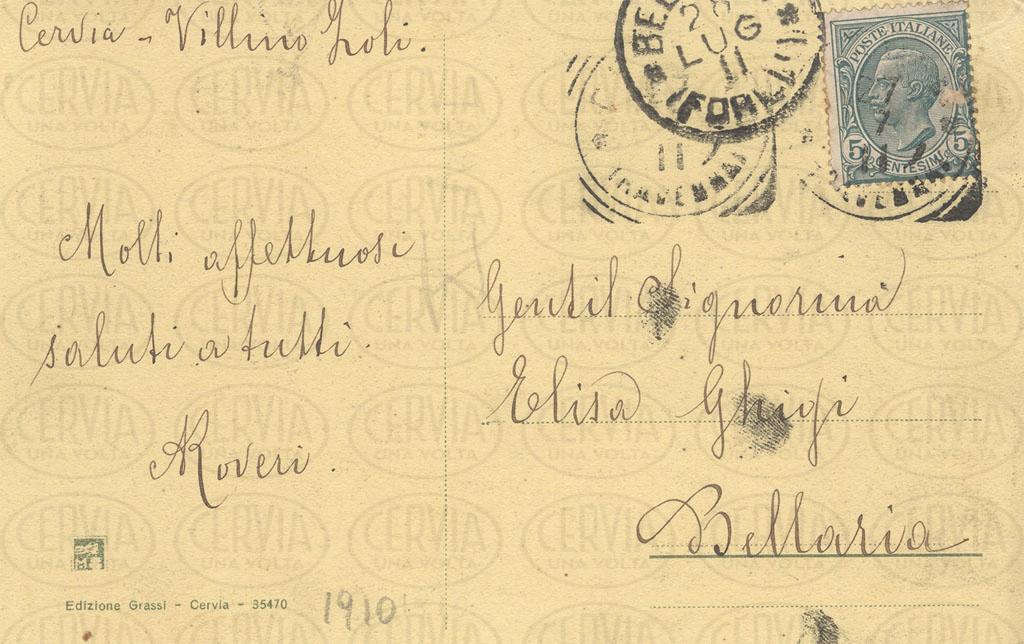 Cervia - Villino Zoli.
BEL
28
LUG
11
(FORLI)
11
(RAVENNA)
POSTE ITALIANE
27
7
11
5 CENTESIMI 5
Molti affettuosi
saluti a tutti.
Roveri.
Gentil Signorina
Elisa Ghigi
Bellaria
Edizione Grassi - Cervia - 35470
1910
CERVIA
UNA VOLTA